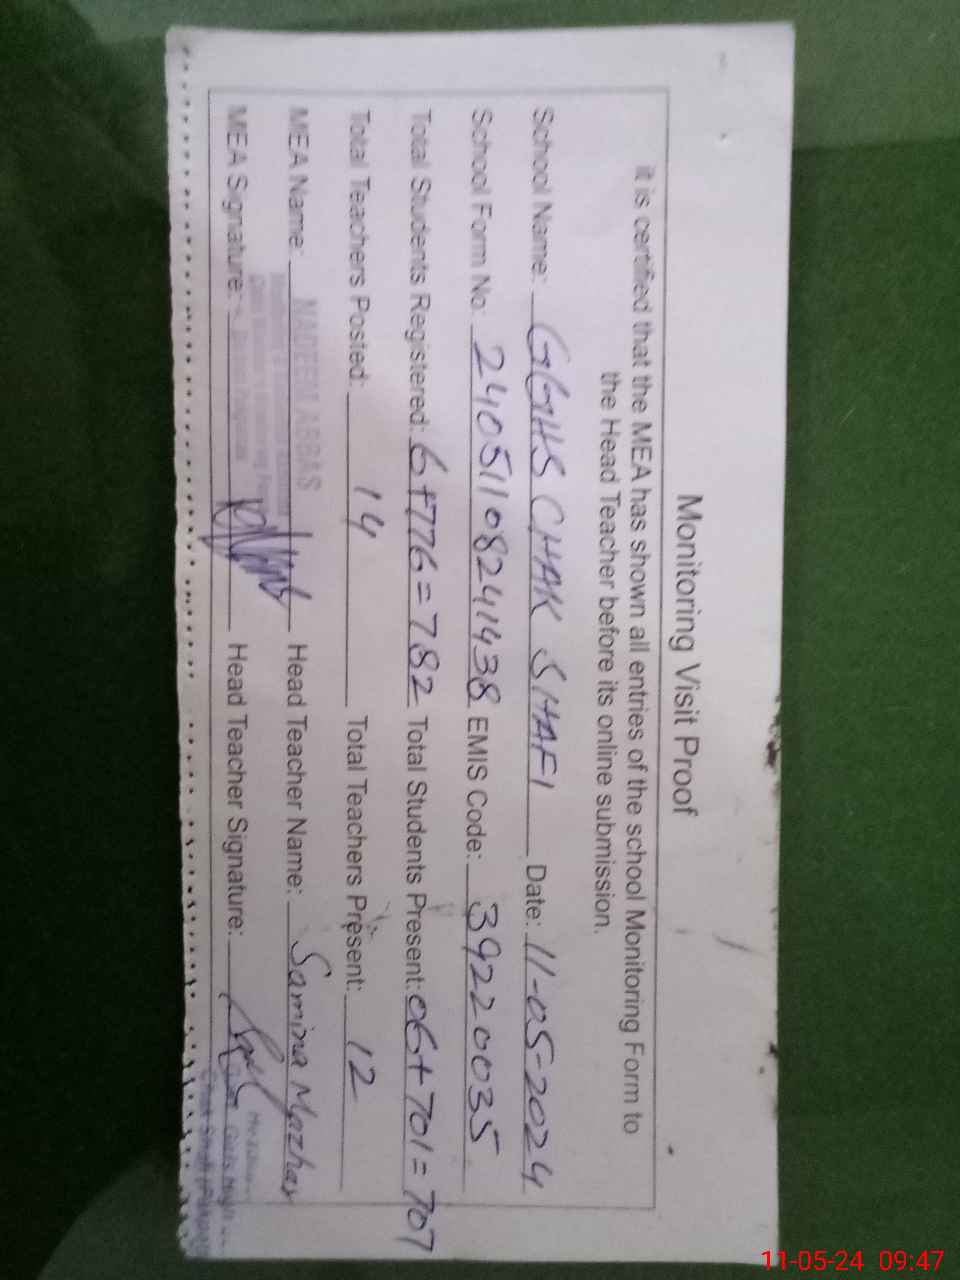 Monitoring Visit Proof
it is certified that the MEA has shown all entries of the school Monitoring Form to
the Head Teacher before its online submission.
School Name: GGHS CHAK SHAFI Date: 11-05-2024
School Form No: 24051108241438 EMIS Code: 39220035
Total Students Registered: 6+776=782 Total Students Present: 06+701=707
Total Teachers Posted: 14 Total Teachers Present: 12
MEA Name: NADEEM ABBAS Head Teacher Name: Samina Mazhar
MEA Signature: Head Teacher Signature:
11-05-24 09:47